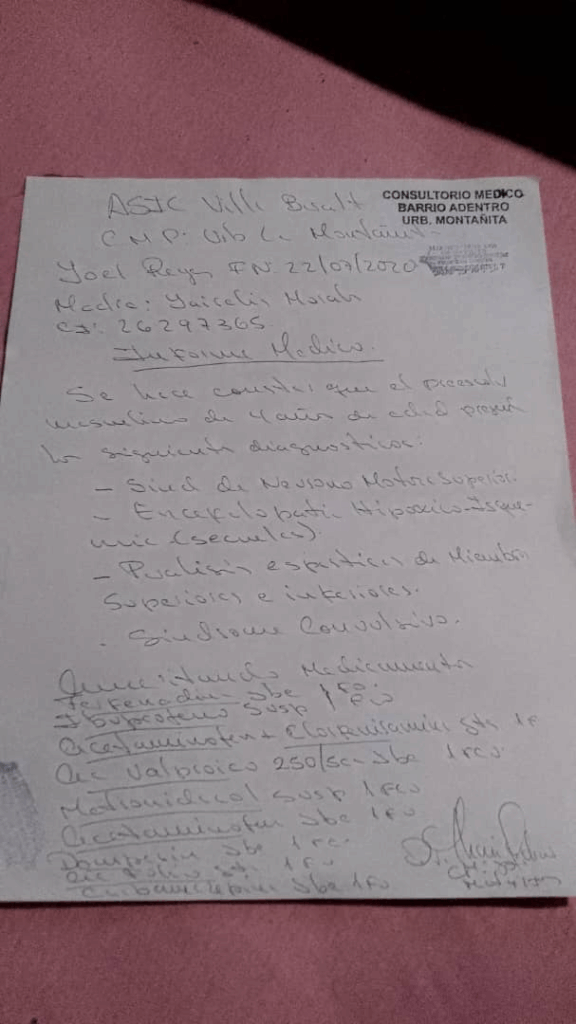 CONSULTORIO MEDICO
BARRIO ADENTRO
URB. MONTAÑITA
ASIC Ville
CMP. Urb La Montañit
Yoel Reyes FN 22/07/2020
Madre:
CI: 26297365
Informe Medico.
Se hace constar que el paciente
masculino de 4 años de edad presen
los siguiente diagnosticos:
- Sind de Neurona Motora Superior.
- Encefalopatia Hipoxico-Isque-
mic (secuelas).
- Paralisis espastica de Miembros
Superiores e inferiores.
- Sindrome Convulsivo.
Medicamento
Jbe 1 fco.
Ibuprofeno Susp 1 fco
Acetaminofen + Clorfenilamina gts 1f
Ac Valproico 250/5cc Jbe 1 fco.
Metronidazol Susp 1 fco
Acetaminofen Jbe 1 fco.
Jbe 1 fco.
Ac Folico 1 fco
Carbamazepina Jbe 1 fco